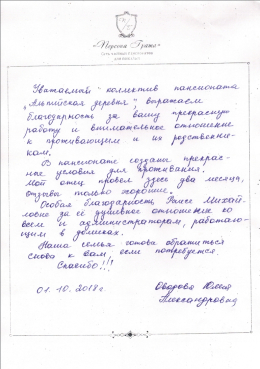 «Первая Грата»
Уважаемый коллектив пансионата
„Альпийская деревня", выражаем
благодарность за вашу прекрасную
работу и внимательное отношение
к проживающим и их родственни-
кам.
В пансионате созданы прекрас-
ные условия для проживания.
Мой отец провел здесь два месяца,
отзывы только хорошие.
Особая благодарность Раисе Михай-
ловне за её душевное отношение ко
всем и администраторам, работаю-
щим в домиках.
Наша семья готова обратиться
снова к вам, если потребуется.
Спасибо!!!
01.10.2018г. Оводова Юлия
Александровна